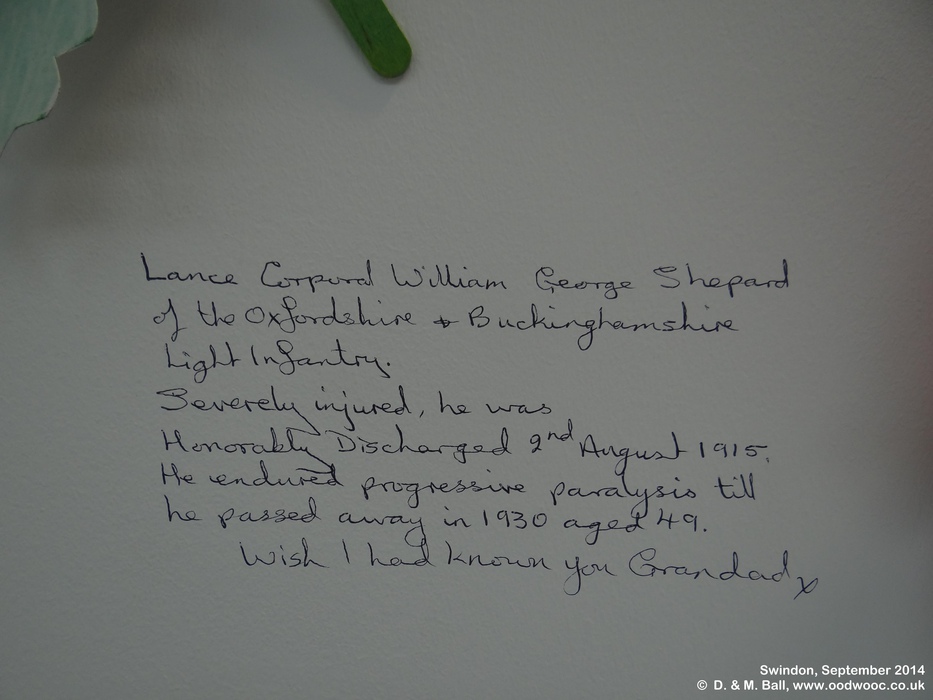 Lance Corporal William George Shepard
of the Oxfordshire & Buckinghamshire
Light Infantry.
Severely injured, he was
Honorably Discharged 2nd August 1915.
He endured progressive paralysis till
he passed away in 1930 aged 49.
Wish I had known you Grandad x
Swindon, September 2014
© D. & M. Ball, www.oodwooc.co.uk